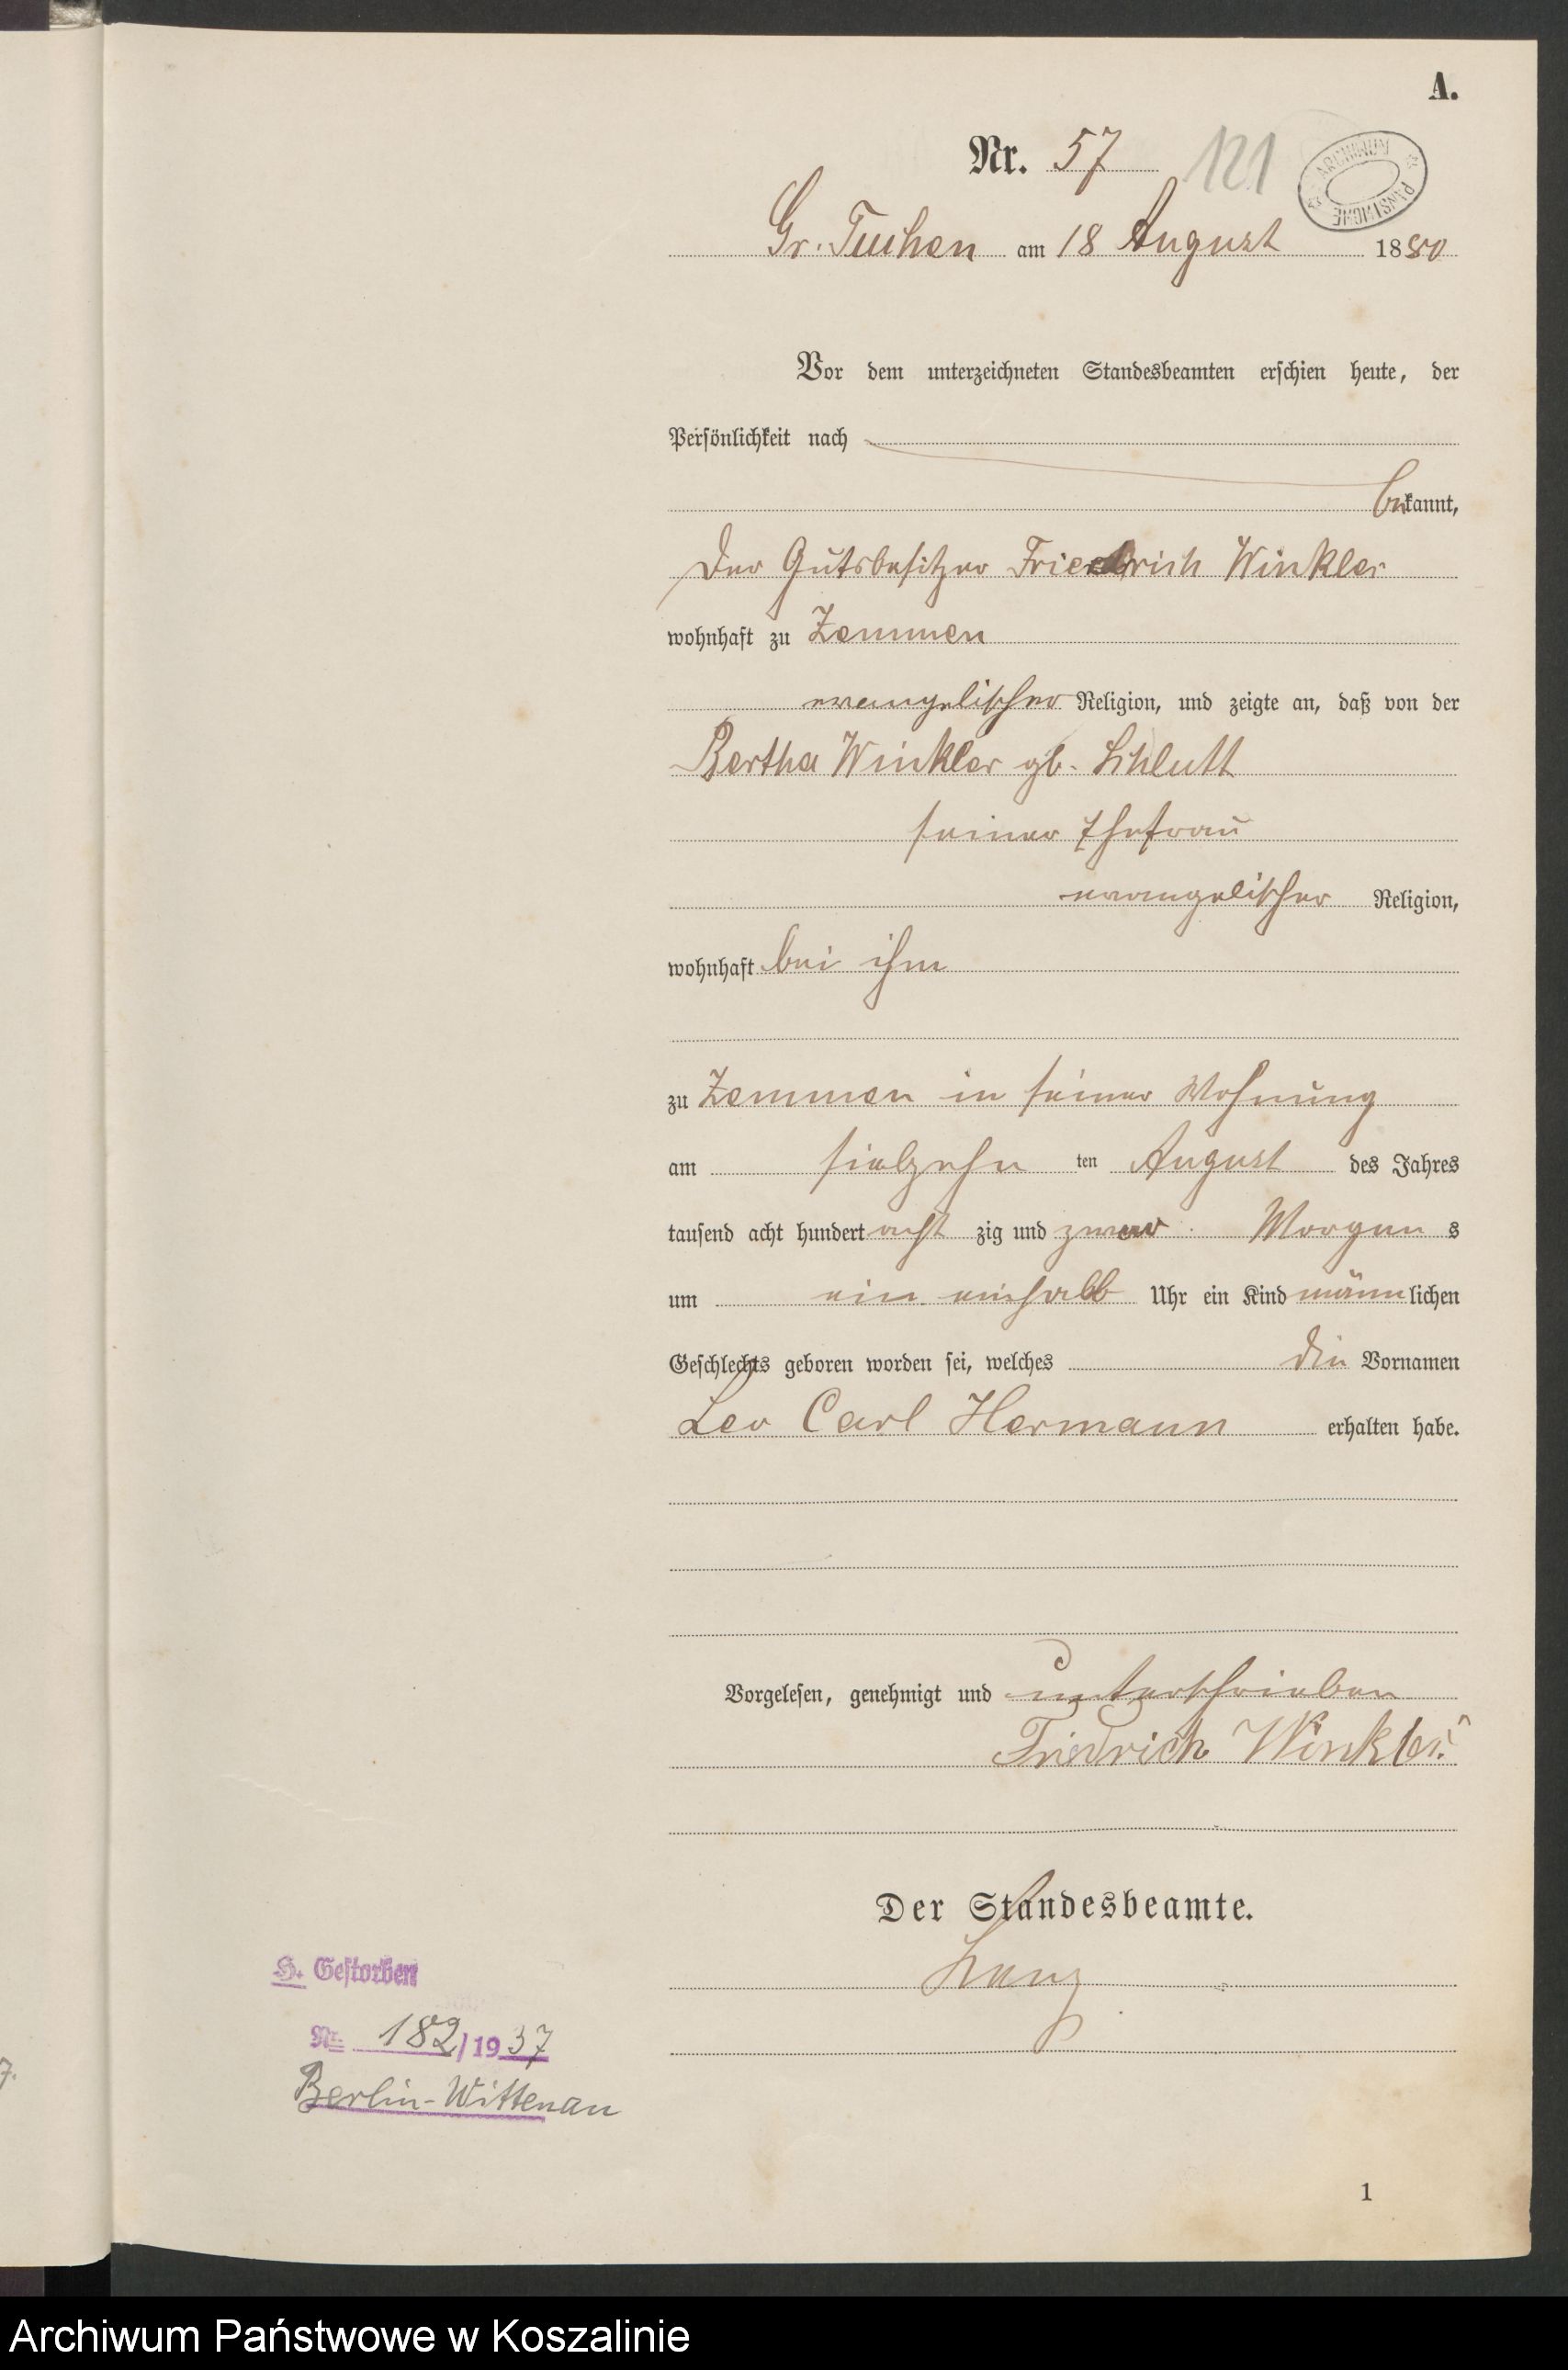 A.
Nr. 57 121
ARCHIWUM PAŃSTWOWE
Gr. Tuchen am 18 August 1880
Vor dem unterzeichneten Standesbeamten erschien heute, der
Persönlichkeit nach
bekannt,
der Gutsbesitzer Friedrich Winkler
wohnhaft zu Zemmen
evangelischer Religion, und zeigte an, daß von der
Bertha Winkler gb. Schlutt
seiner Ehefrau
evangelischer Religion,
wohnhaft bei ihm
zu Zemmen in seiner Wohnung
am siebzehn ten August des Jahres
tausend acht hundert acht zig und zwar Morgen s
um ein einhalb Uhr ein Kind männlichen
Geschlechts geboren worden sei, welches die Vornamen
Leo Carl Hermann erhalten habe.
Vorgelesen, genehmigt und unterschrieben
Friedrich Winkler
Der Standesbeamte.
H. Gestorben
Nr. 182/1937
Berlin-Wittenau
1
Archiwum Państwowe w Koszalinie